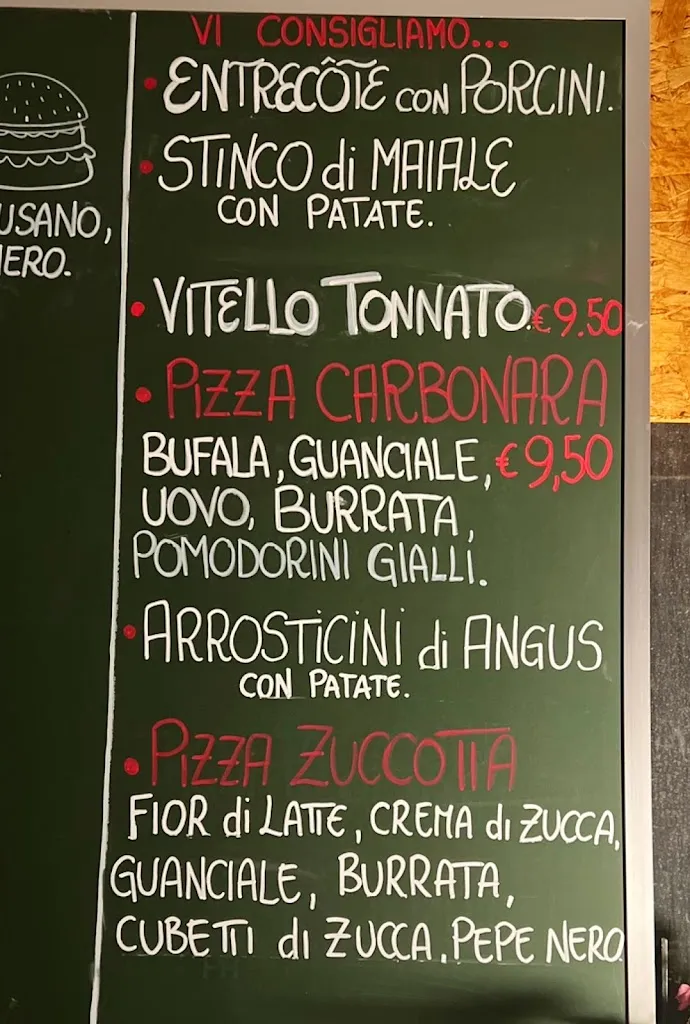 VI CONSIGLIAMO...
• ENTRECÔTE CON PORCINI.
• STINCO di MAIALE
CON PATATE.
• VITELLO TONNATO. € 9.50
• PIZZA CARBONARA
BUFALA, GUANCIALE, € 9,50
UOVO, BURRATA,
POMODORINI GIALLI.
• ARROSTICINI di ANGUS
CON PATATE.
• PIZZA ZUCCOTTA
FIOR di LATTE, CREMA di ZUCCA,
GUANCIALE, BURRATA,
CUBETTI di ZUCCA, PEPE NERO
USANO,
ERO.